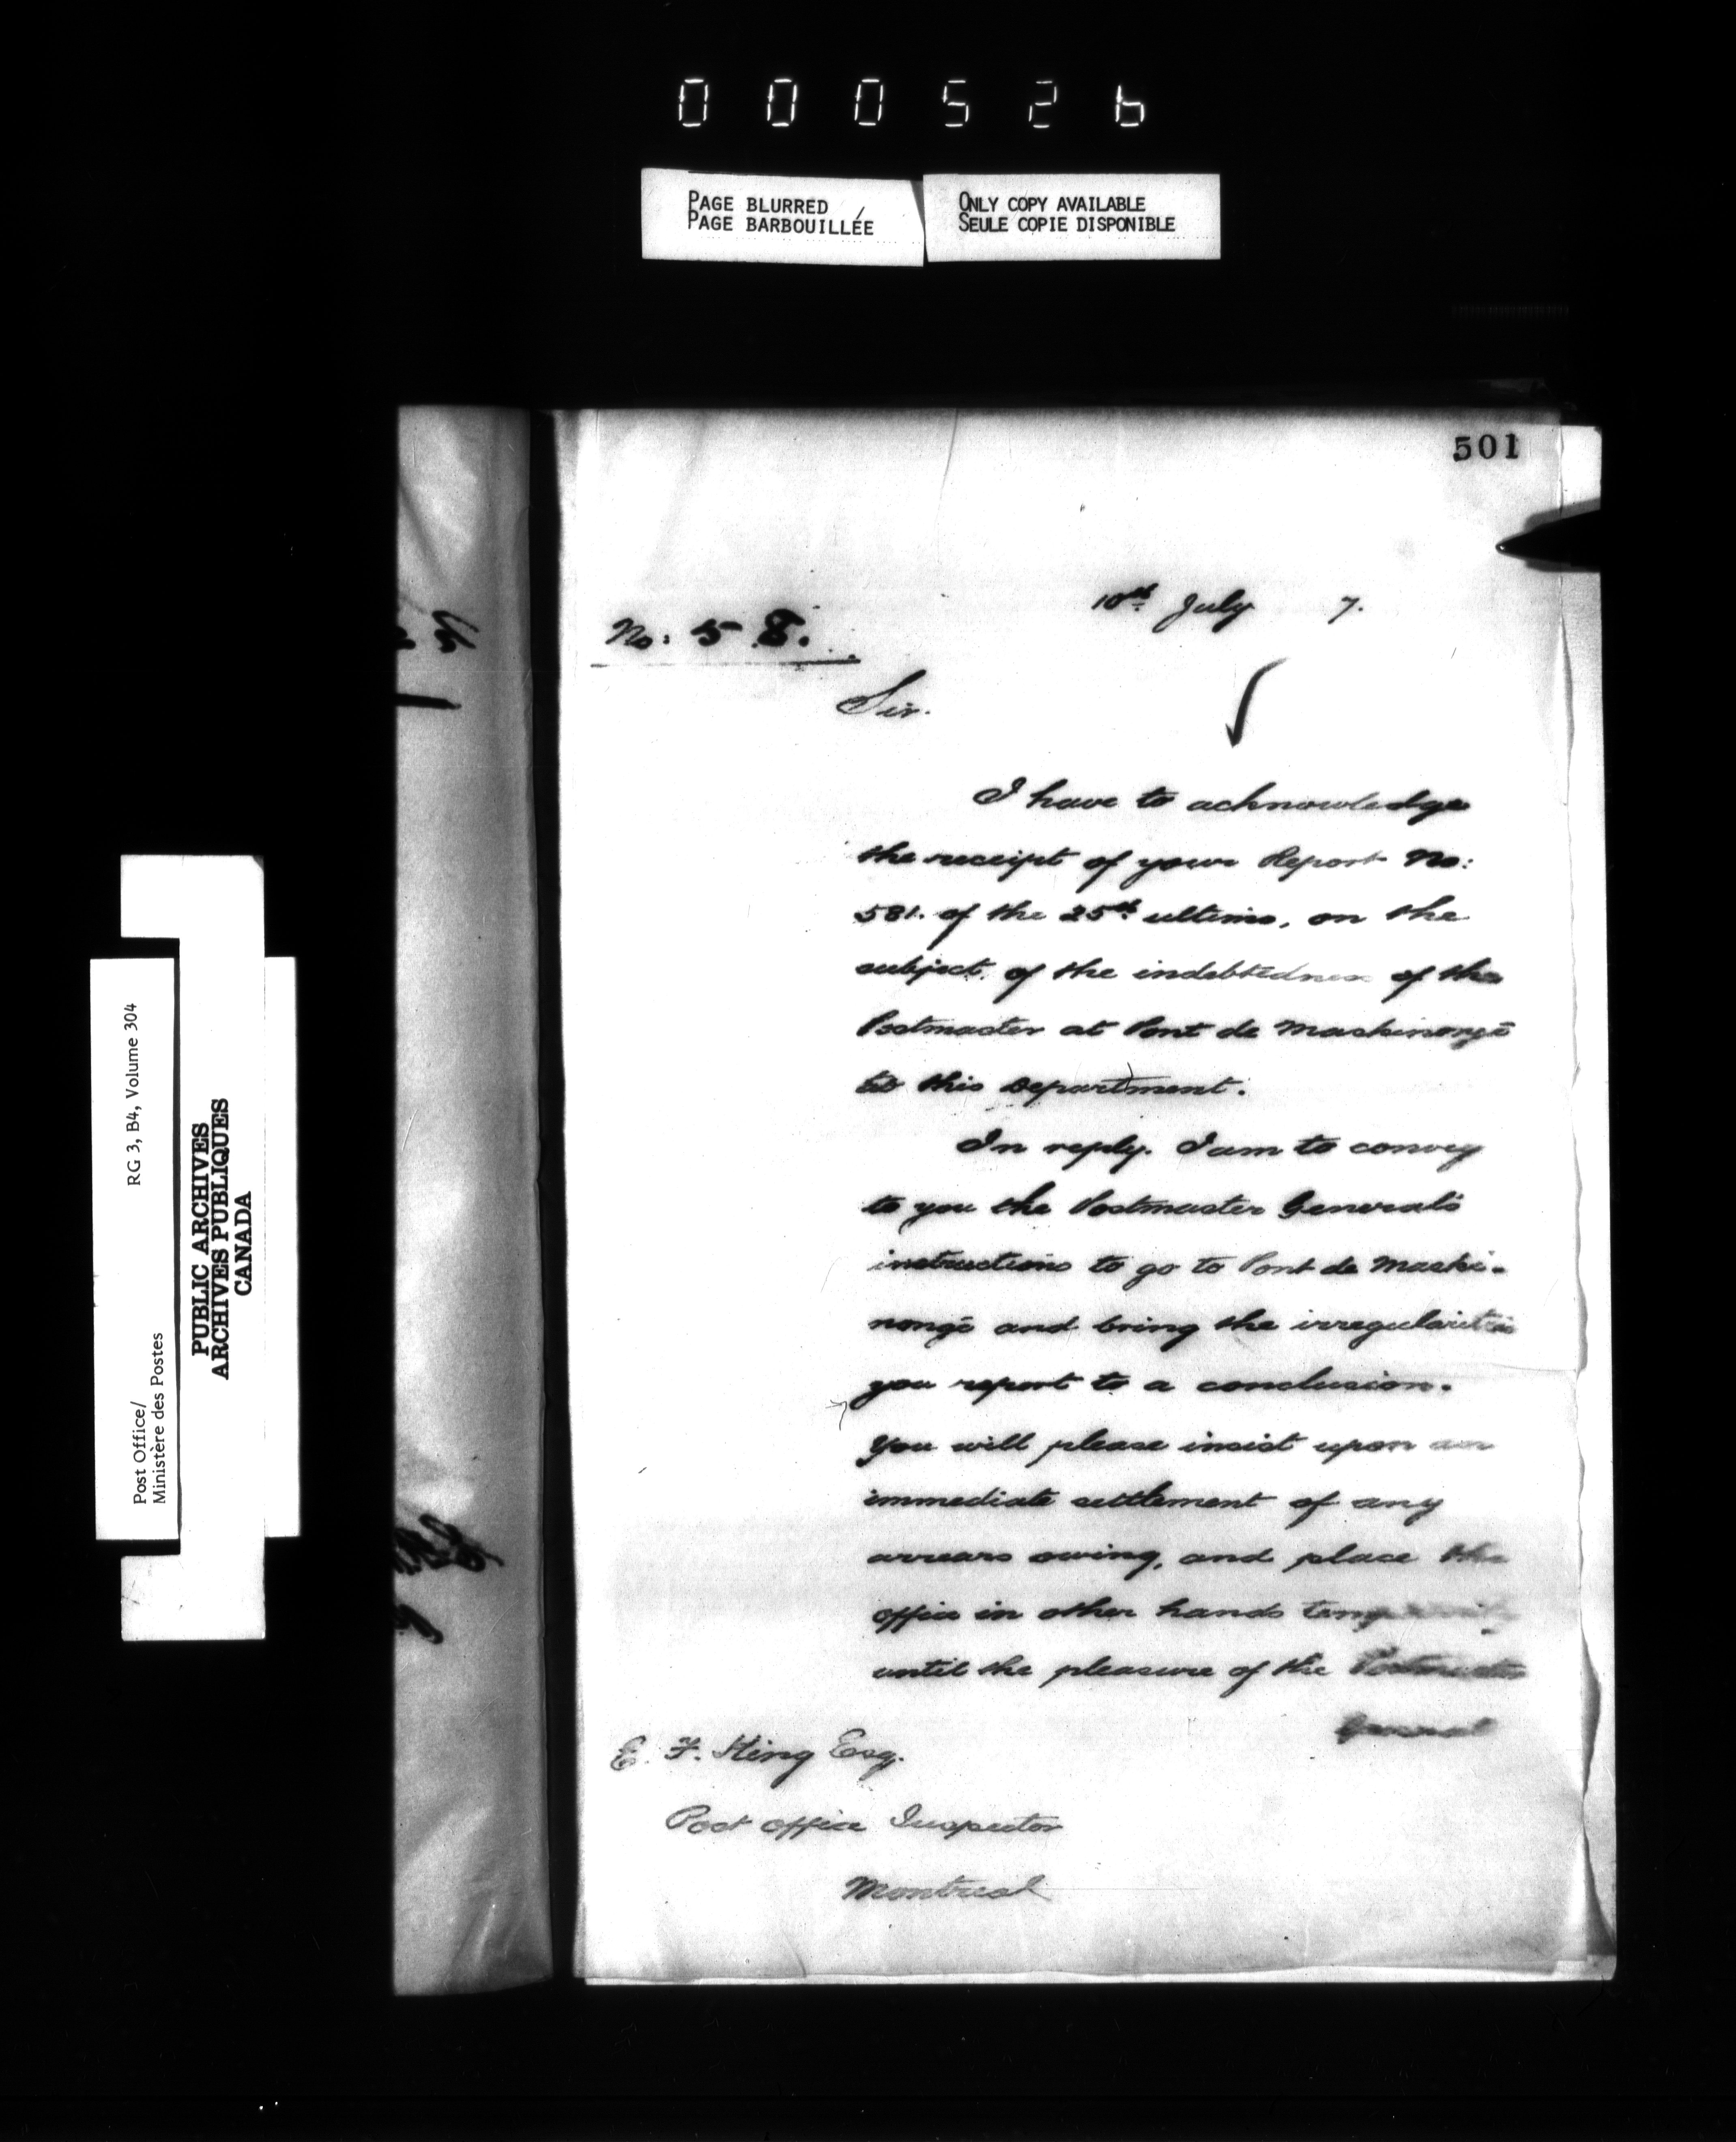 000526
PAGE BLURRED
PAGE BARBOUILLÉE
ONLY COPY AVAILABLE
SEULE COPIE DISPONIBLE
501
10th July 7.
No: 5 E.
Sir.
I have to acknowledge
the receipt of your Report No:
581. of the 25th ultimo, on the
subject of the indebtedness of the
Postmaster at Pont de Maskinongé
to this Department.
In reply. I am to convey
to you the Postmaster General's
instructions to go to Pont de Maski-
nongé and bring the irregularities
you report to a conclusion.
You will please insist upon an
immediate settlement of any
arrears owing, and place the
office in other hands temporarily
until the pleasure of the Postmaster
General
E. F. King Esq.
Post Office Inspector
Montreal
Post Office/
Ministère des Postes
RG 3, B4, Volume 304
PUBLIC ARCHIVES
ARCHIVES PUBLIQUES
CANADA